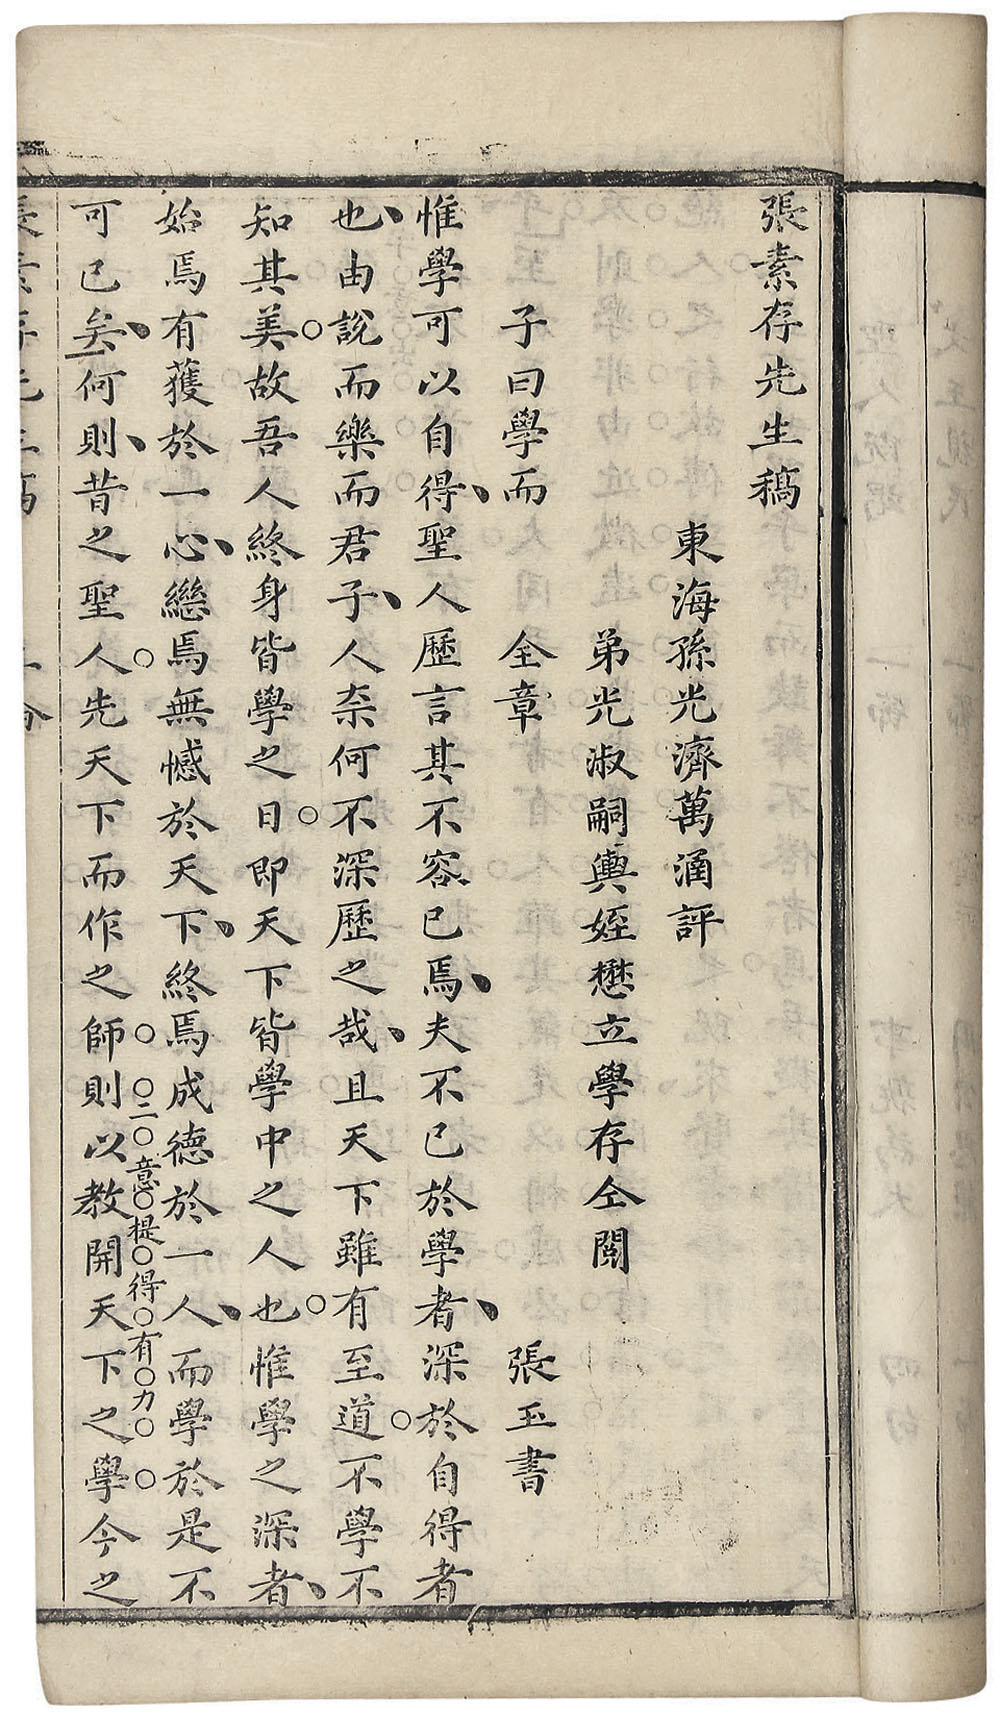 張素存先生稿
東海孫光濟萬涵評
弟光淑嗣輿姪懋立學存仝閱
子曰學而 全章 張玉書
惟學可以自得聖人歷言其不容已焉夫不已於學者深於自得者
也由說而樂而君子人柰何不深歷之哉且天下雖有至道不學不
知其美故吾人終身皆學之日即天下皆學中之人也惟學之深者
始焉有獲於一心繼焉無憾於天下終焉成德於一人而學於是不
二意提得有力
可已矣何則昔之聖人先天下而作之師則以教開天下之學今之
張素存先生稿 上論